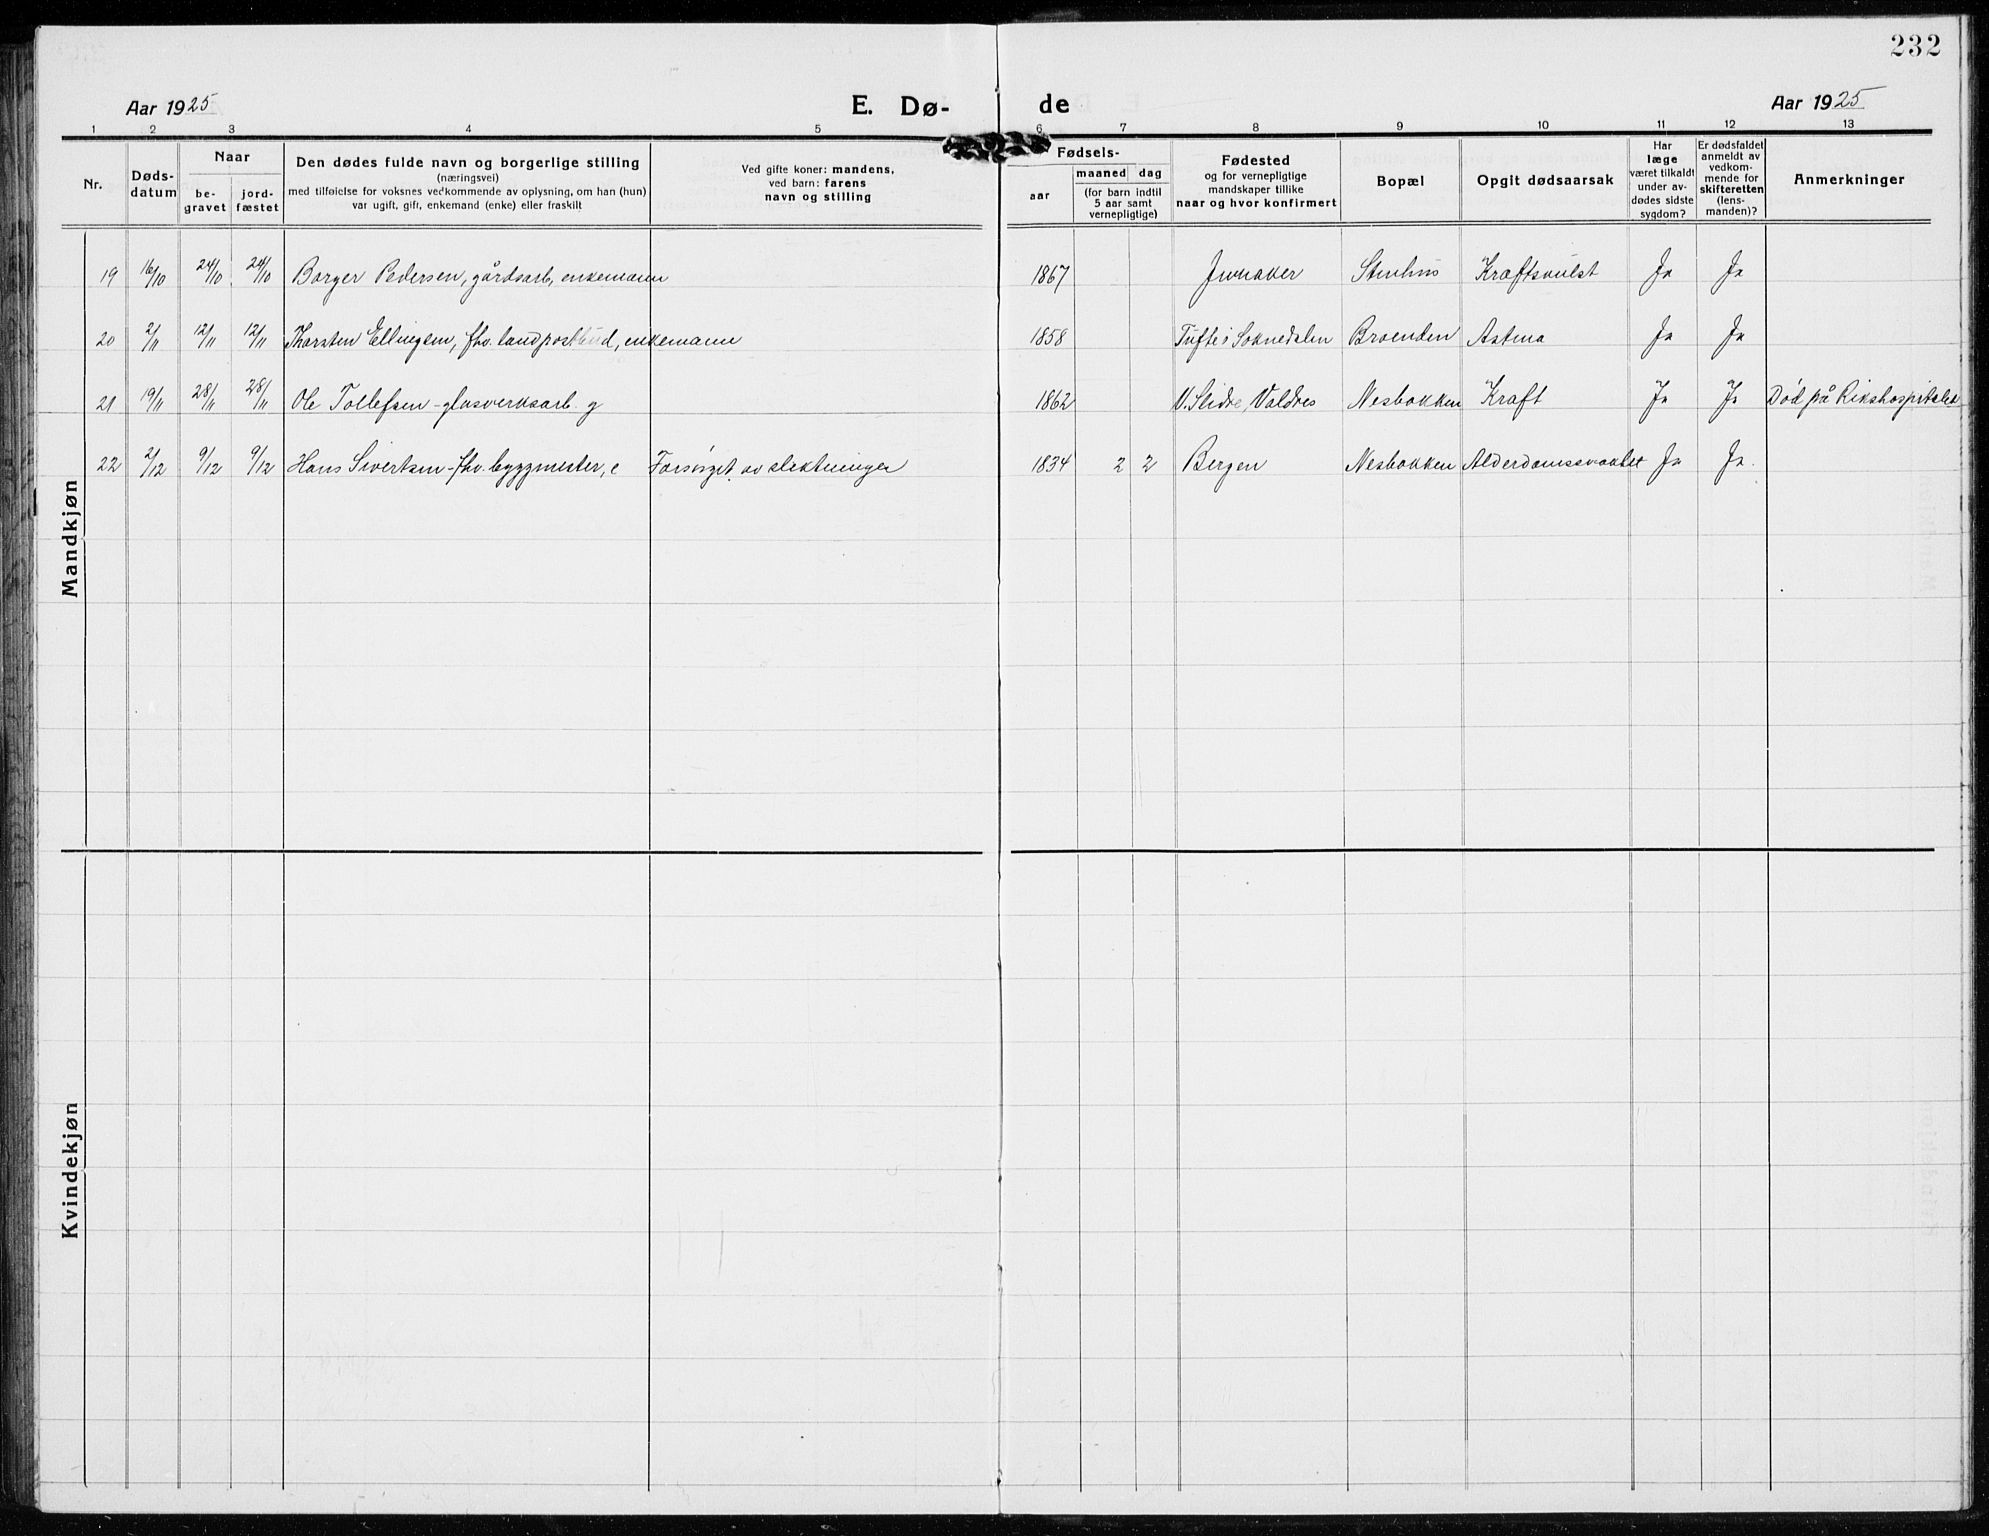 232
Aar 1925 E. Dø- de Aar 1925
1 2 3 4 5 6 7 8 9 10 11 12 13
Nr.
Døds-
datum
Naar
be-
gravet
jord-
fæstet
Den dødes fulde navn og borgerlige stilling
(næringsvei)
med tilføielse for voksnes vedkommende av oplysning, om han (hun)
var ugift, gift, enkemand (enke) eller fraskilt
Ved gifte koner: mandens,
ved barn: farens
navn og stilling
Fødsels-
aar
maaned dag
(for barn indtil
5 aar samt
vernepligtige)
Fødested
og for vernepligtige
mandskaper tillike
naar og hvor konfirmert
Bopæl
Opgit dødsaarsak
Har
læge
været tilkaldt
under av-
dødes sidste
sygdom?
Er dødsfaldet
anmeldt av
vedkom-
mende for
skifteretten
(lens-
manden)?
Anmerkninger
19 16/10 24/10 24/10 Borger Pedersen, gårdsarb, enkemann 1867 Jevnaker Stenhus Kræftsvulst Ja Ja
20 2/11 12/11 12/11 Thorsten Ellingsen, fhv. landpostbud, enkemann 1858 Tufte i Soknedalen Braenden Astma Ja Ja
21 19/11 28/11 28/11 Ole Tollefsen - glasverksarb. g 1862 V. Slidre, Valdres Nesbakken Kraft Ja Ja Død på Rikshospitalet
22 2/12 9/12 9/12 Hans Sivertsen - fhv. byggmester, e Forsørget av slektninger 1834 2 2 Bergen Nesbakken Alderdomssvakhet Ja Ja.
Mandkjøn
Kvindekjøn